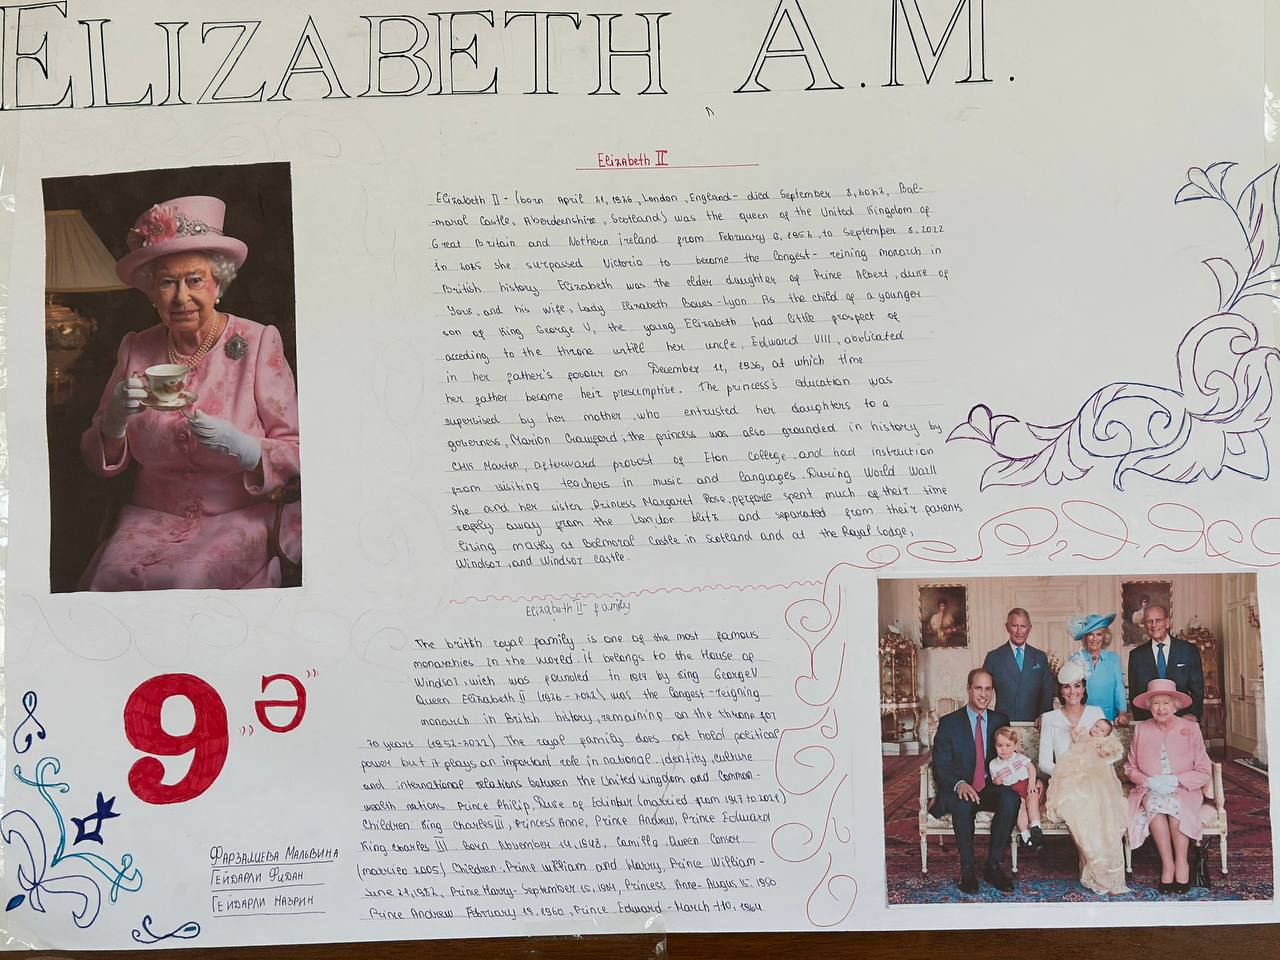 ELIZABETH A.M.
Elizabeth II
Elizabeth II - (born April 21, 1926, London, England - died September 8, 2022, Bal-
-moral Castle, Aberdeenshire, Scotland) was the queen of the United Kingdom of
Great Britain and Nothern ireland from February 6, 1952, to September 8, 2022
in 2015 she surpassed Victoria to become the longest - reining monarch in
British history Elizabeth was the elder daughter of Prince Albert, duke of
York, and his wife, Lady Elizabeth Bowes-Lyon. As the child of a younger
son of King George V, the young Elizabeth had little prospect of
acceding to the throne untill her uncle, Edward VIII, abdicated
in her father's favour on December 11, 1936, at which time
her father became heir presumptive. The princess's education was
supervised by her mother, who entrusted her daughters to a
governess, Marion Crawford, the princess was also grounded in history by
CHK Marten, afterward provost of Eton College, and had instruction
from visiting teachers in music and languages. During World War II
she and her sister, Princess Margaret Rose, spent much of their time
safely away from the London blitz and separated from their parents
living mostly at Balmoral Castle in Scotland and at the Royal Lodge,
Windsor, and Windsor castle.
Elizabeth II - family
The british royal family is one of the most famous
monarchies in the world. it belongs to the House of
Windsor, wich was founded in 1917 by King George V
Queen Elizabeth II (1926 - 2022) was the longest - reigning
monarch in British history, remaining on the throne for
70 years (1952-2022) The royal family does not hold political
power but it plays an important role in national identity, culture
and international relations between the United kingdom and Common-
wealth nations Prince Philip, Duke of Edinbur (married from 1947 to 2021)
Children: King Charles III, Princess Anne, Prince Andrew, Prince Edward
King Charles III Born November 14, 1948, Camilla, Queen Consor
(married 2005) Children: Prince William and Harry, Prince William -
June 21, 1982, Prince Harry - September 15, 1984, Princess Anne - Augus 15. 1950
Prince Andrew February 19. 1960, Prince Edward - March 10, 1964.
9 „ə”
ФАРЗАЛИЕВА МАЛЬВИНА
ГЕЙДАРЛИ ФИДАН
ГЕЙДАРЛИ НАЗРИН